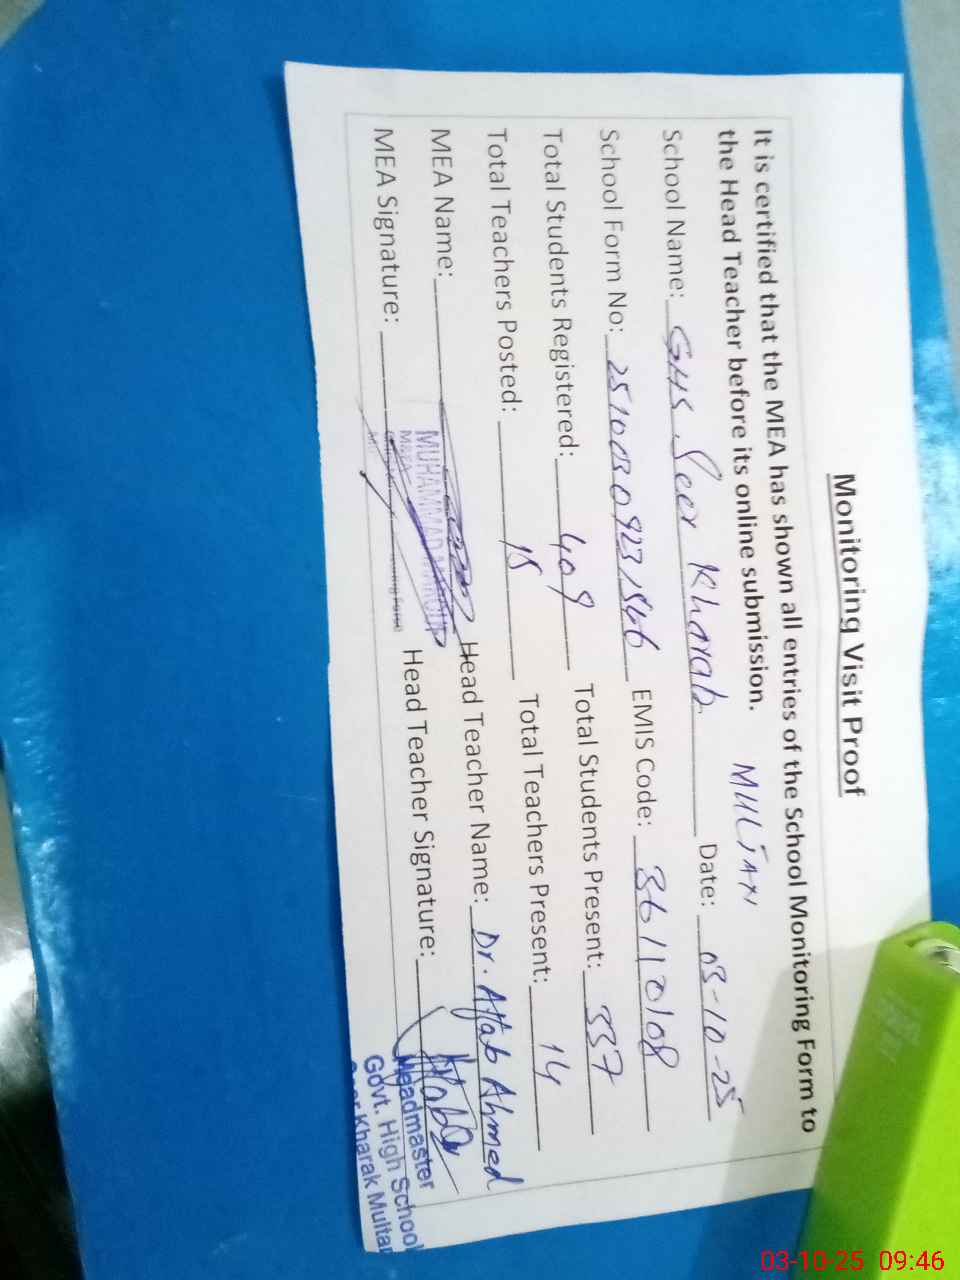 Monitoring Visit Proof
It is certified that the MEA has shown all entries of the School Monitoring Form to
the Head Teacher before its online submission.
MULTAN
School Name: GHS Seer Kharak Date: 03-10-25
School Form No: EMIS Code: 36110108
Total Students Registered: 409 Total Students Present: 337
Total Teachers Posted: 15 Total Teachers Present: 14
MEA Name: MUHAMMAD Head Teacher Name: Dr. Aftab Ahmed
MEA Signature: Head Teacher Signature: Aftab
Headmaster
Govt. High School
Seer Kharak Multan
03-10-25 09:46